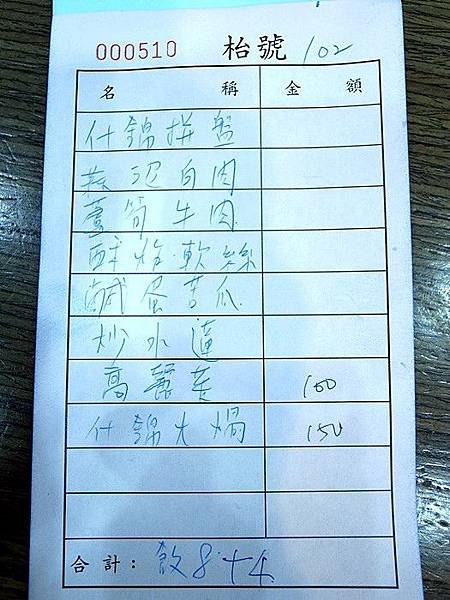 000510 枱號 102
名稱 金額
什錦拼盤
蒜泥白肉
蘆筍牛肉
酥炸軟絲
鹹蛋苦瓜
炒水蓮
高麗菜 100
什錦火鍋 150
合計: 飯8+4